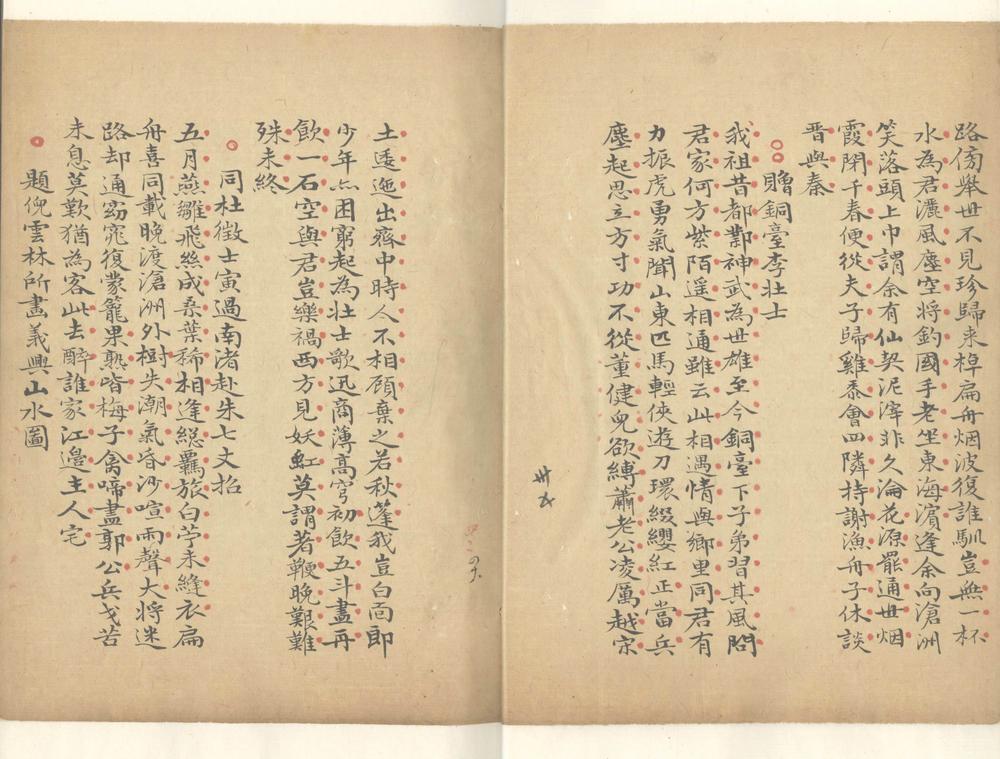 路傍舉世不見珍歸来棹扁舟烟波復誰馴豈無一杯
水為君灑風塵空将釣國手老坐東海濵逢余向滄洲
笑落頭上巾謂余有仙契泥滓非久淪花源罷通世烟
霞閉千春便從夫子歸雞黍會四隣持謝漁舟子休談
晋與秦
贈銅臺李壮士
我祖昔都鄴神武為世雄至今銅臺下子弟習其風問
君家何方紫陌遥相通雖云此相遇情與鄉里同君有
力振虎勇氣聞山東匹馬輕俠遊刀環綴纓紅正當兵
塵起思立方寸功不從董健兒欲縛蕭老公凌厲越宗
卅五
土逶迤出齊中時人不相顧棄之若秋蓬我豈白面郎
少年亦困窮起為壮士歌迅商薄高穹初飲五斗盡再
飲一石空與君豈樂禍西方見妖虹莫謂著鞭晚艱難
殊未終
同杜徵士寅過南渚赴朱七丈招
五月燕雛飛絲成桑葉稀相逢緫羈旅白苧未縫衣扁
舟喜同載晚渡滄洲外樹失潮氣昏沙喧雨聲大将迷
路却通窈窕復蒙籠果熟皆梅子禽啼盡郭公兵戈苦
未息莫歎猶為客此去醉誰家江邊主人宅
題倪雲林所畫義興山水圖